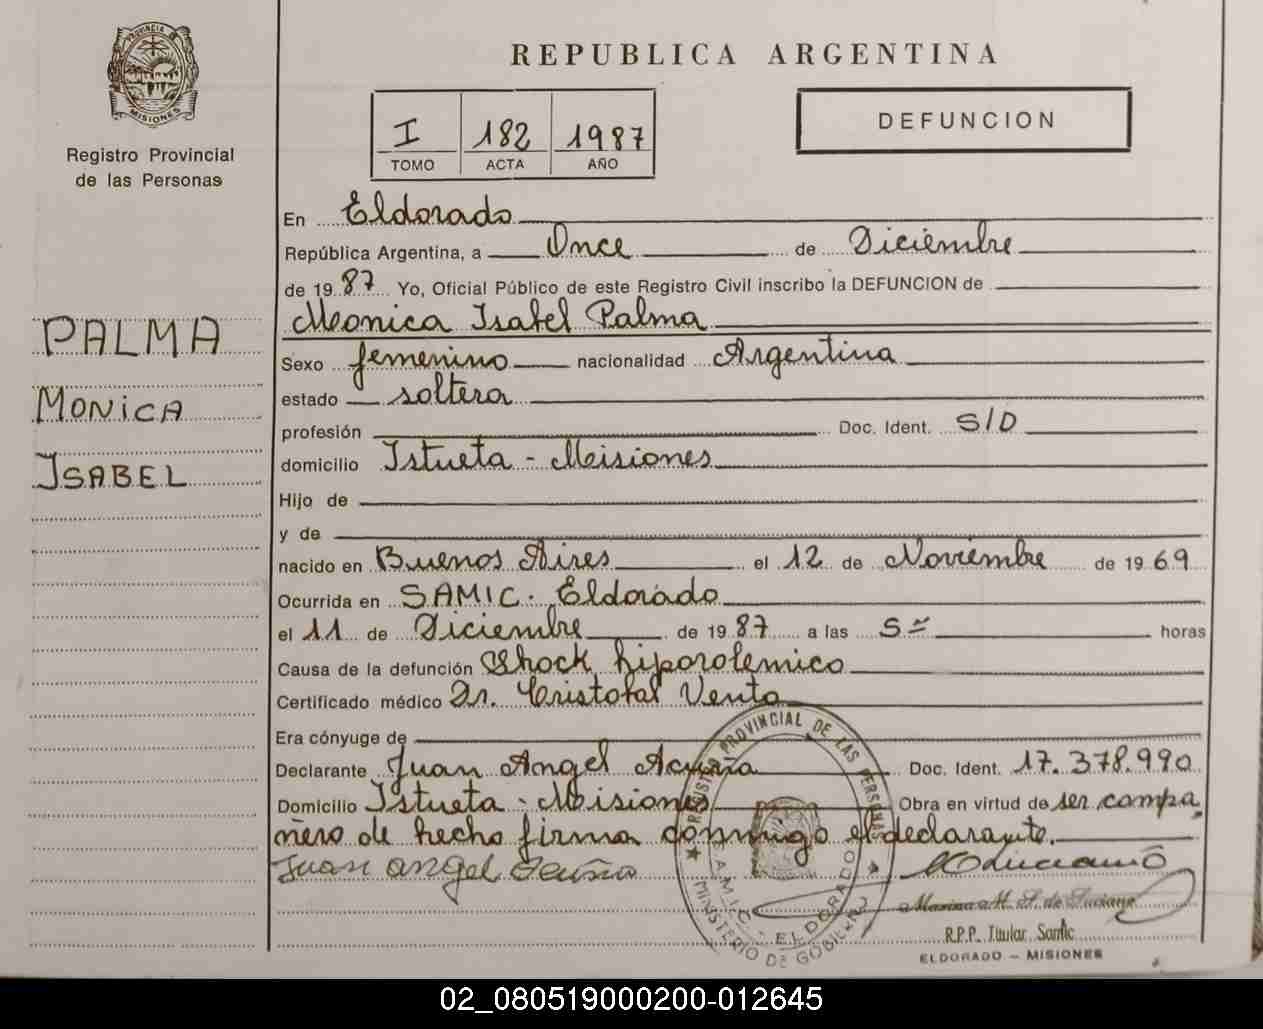 PROVINCIA DE
MISIONES
Registro Provincial
de las Personas
PALMA
MONICA
ISABEL
REPUBLICA ARGENTINA
I 182 1987
TOMO ACTA AÑO
DEFUNCION
En Eldorado
República Argentina, a Once de Diciembre
de 1987 Yo, Oficial Público de este Registro Civil inscribo la DEFUNCION de
Monica Isabel Palma
Sexo femenino nacionalidad Argentina
estado soltera
profesión Doc. Ident. S/D
domicilio Istueta - Misiones
Hijo de
y de
nacido en Buenos Aires el 12 de Noviembre de 1969
Ocurrida en SAMIC. Eldorado
el 11 de Diciembre de 1987 a las 5 horas
Causa de la defunción Shock hiporolemico
Certificado médico Dr. Cristobal Vento
Era cónyuge de
Declarante Juan Angel Acuña Doc. Ident. 17.378.990
Domicilio Istueta - Misiones Obra en virtud de ser compa
ñero de hecho firma conmigo el declarante.
Juan angel Acuña
REGISTRO PROVINCIAL DE LAS PERSONAS
S.A.M.I.C. - ELDORADO
MINISTERIO DE GOBIERNO
Marina M. S. de Luciano
R.P.P. Titular Samic
ELDORADO - MISIONES
02_080519000200-012645